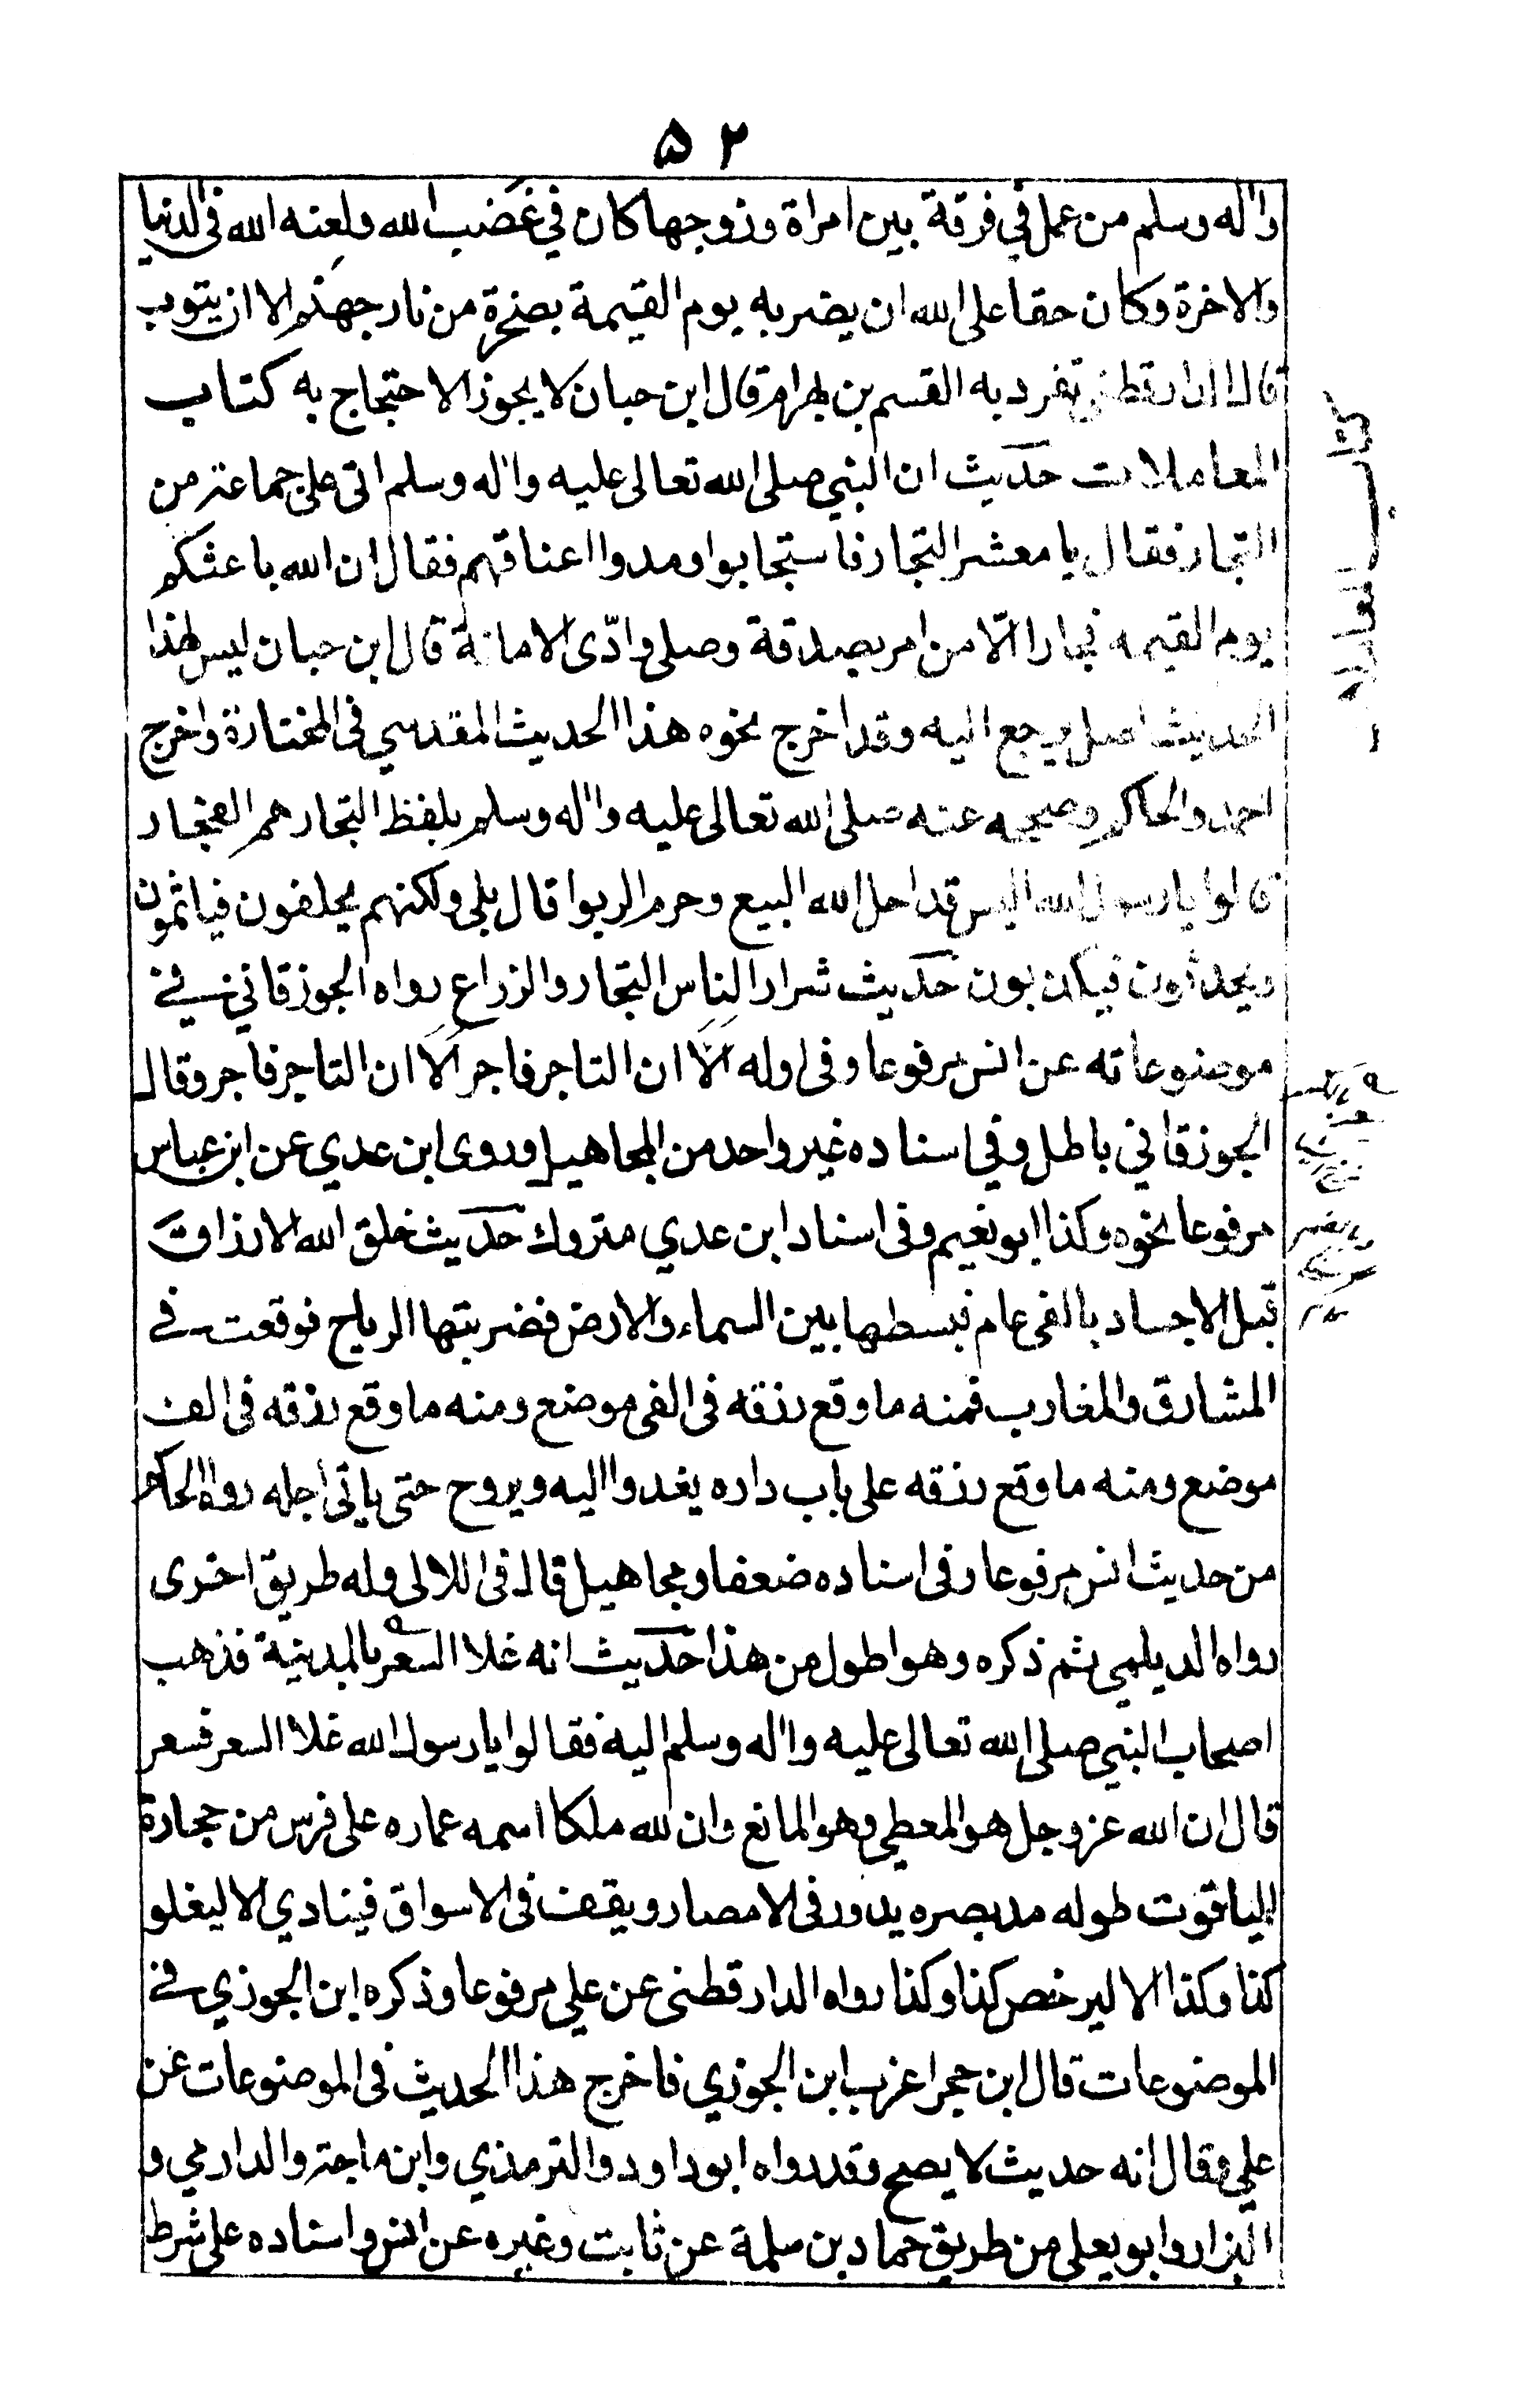 ۵۲
واٰله وسلم من عمل في فرقة بين امراة وزوجها كان في غضب الله ولعنه الله فى الدنيا
والاخرة وكان حقا على الله ان يضربه يوم القيمة بصخرة من نار جهنم الا ان يتوب
قال الدارقطني تفرد به القسم بن بهرام قال ابن حبان لا يجوز الاحتجاج به كتاب
المعاملات حديث ان النبي صلى الله تعالى عليه واٰله وسلم اتى على جماعة من
التجار فقال يا معشر التجار فاستجابوا ومدوا اعناقهم فقال ان الله باعثكم
يوم القيمه فجارا الّا من امر بصدقة وصلى وادّى الامانة قال ابن حبان ليس لهذا
الحديث اصل يرجع اليه وقد اخرج نحوه هذا الحديث المقدسي فى المختارة واخرج
احمد والحاكم وصححه عنه صلى الله تعالى عليه واٰله وسلم بلفظ التجار هم الفجار
قالوا يا رسول الله اليس قد احل الله البيع وحرم الربوا قال بلى ولكنهم يحلفون فياثمون
ويحدثون فيكذبون حديث شرار الناس التجار والزراع رواه الجوزقاني في
موضوعاته عن انس مرفوعا وفى اوله الَا ان التاجر فاجر الَا ان التاجر فاجر وقال
الجوزقاني باطل وفي اسناده غير واحد من المجاهيل وروى ابن عدي عن ابن عباس
مرفوعا نحوه وكذا ابو نعيم وفى اسناد ابن عدي متروك حديث خلق الله الارزاق
قبل الاجساد بالفى عام فبسطها بين السماء والارض فضربتها الرياح فوقعت في
المشارق والمغارب فمنه ما وقع رزقه فى الفى موضع ومنه ما وقع رزقه فى الف
موضع ومنه ما وقع رزقه على باب داره يغدوا اليه ويروح حتى ياتى اجله رواه الحاكم
من حديث انس مرفوعا وفى اسناده ضعفا ومجاهيل قال فى اللالى وله طريق اخرى
رواه الديلمي ثم ذكره وهو اطول من هذا حديث انه غلا السعر بالمدينة فذهب
اصحاب النبي صلى الله تعالى عليه واٰله وسلم اليه فقالوا يا رسول الله غلا السعر فسعر
قال ان الله عز وجل هو المعطي وهو المانع وان لله ملكا اسمه عماره على فرس من حجارة
الياقوت طوله مد بصره يدور فى الامصار ويقف فى الاسواق فينادي الا ليغلو
كذا وكذا الا ليرخص كذا وكذا رواه الدارقطنى عن علي مرفوعا وذكره ابن الجوزي في
الموضوعات قال ابن حجر اغرب ابن الجوزي فاخرج هذا الحديث فى الموضوعات عن
علي وقال انه حديث لا يصح وقد رواه ابو داود والترمذي وابن ماجة والدارمي و
البزار وابو يعلى من طريق حماد بن سلمة عن ثابت وغيره عن انس واسناده على شرط
كتاب المعاملات